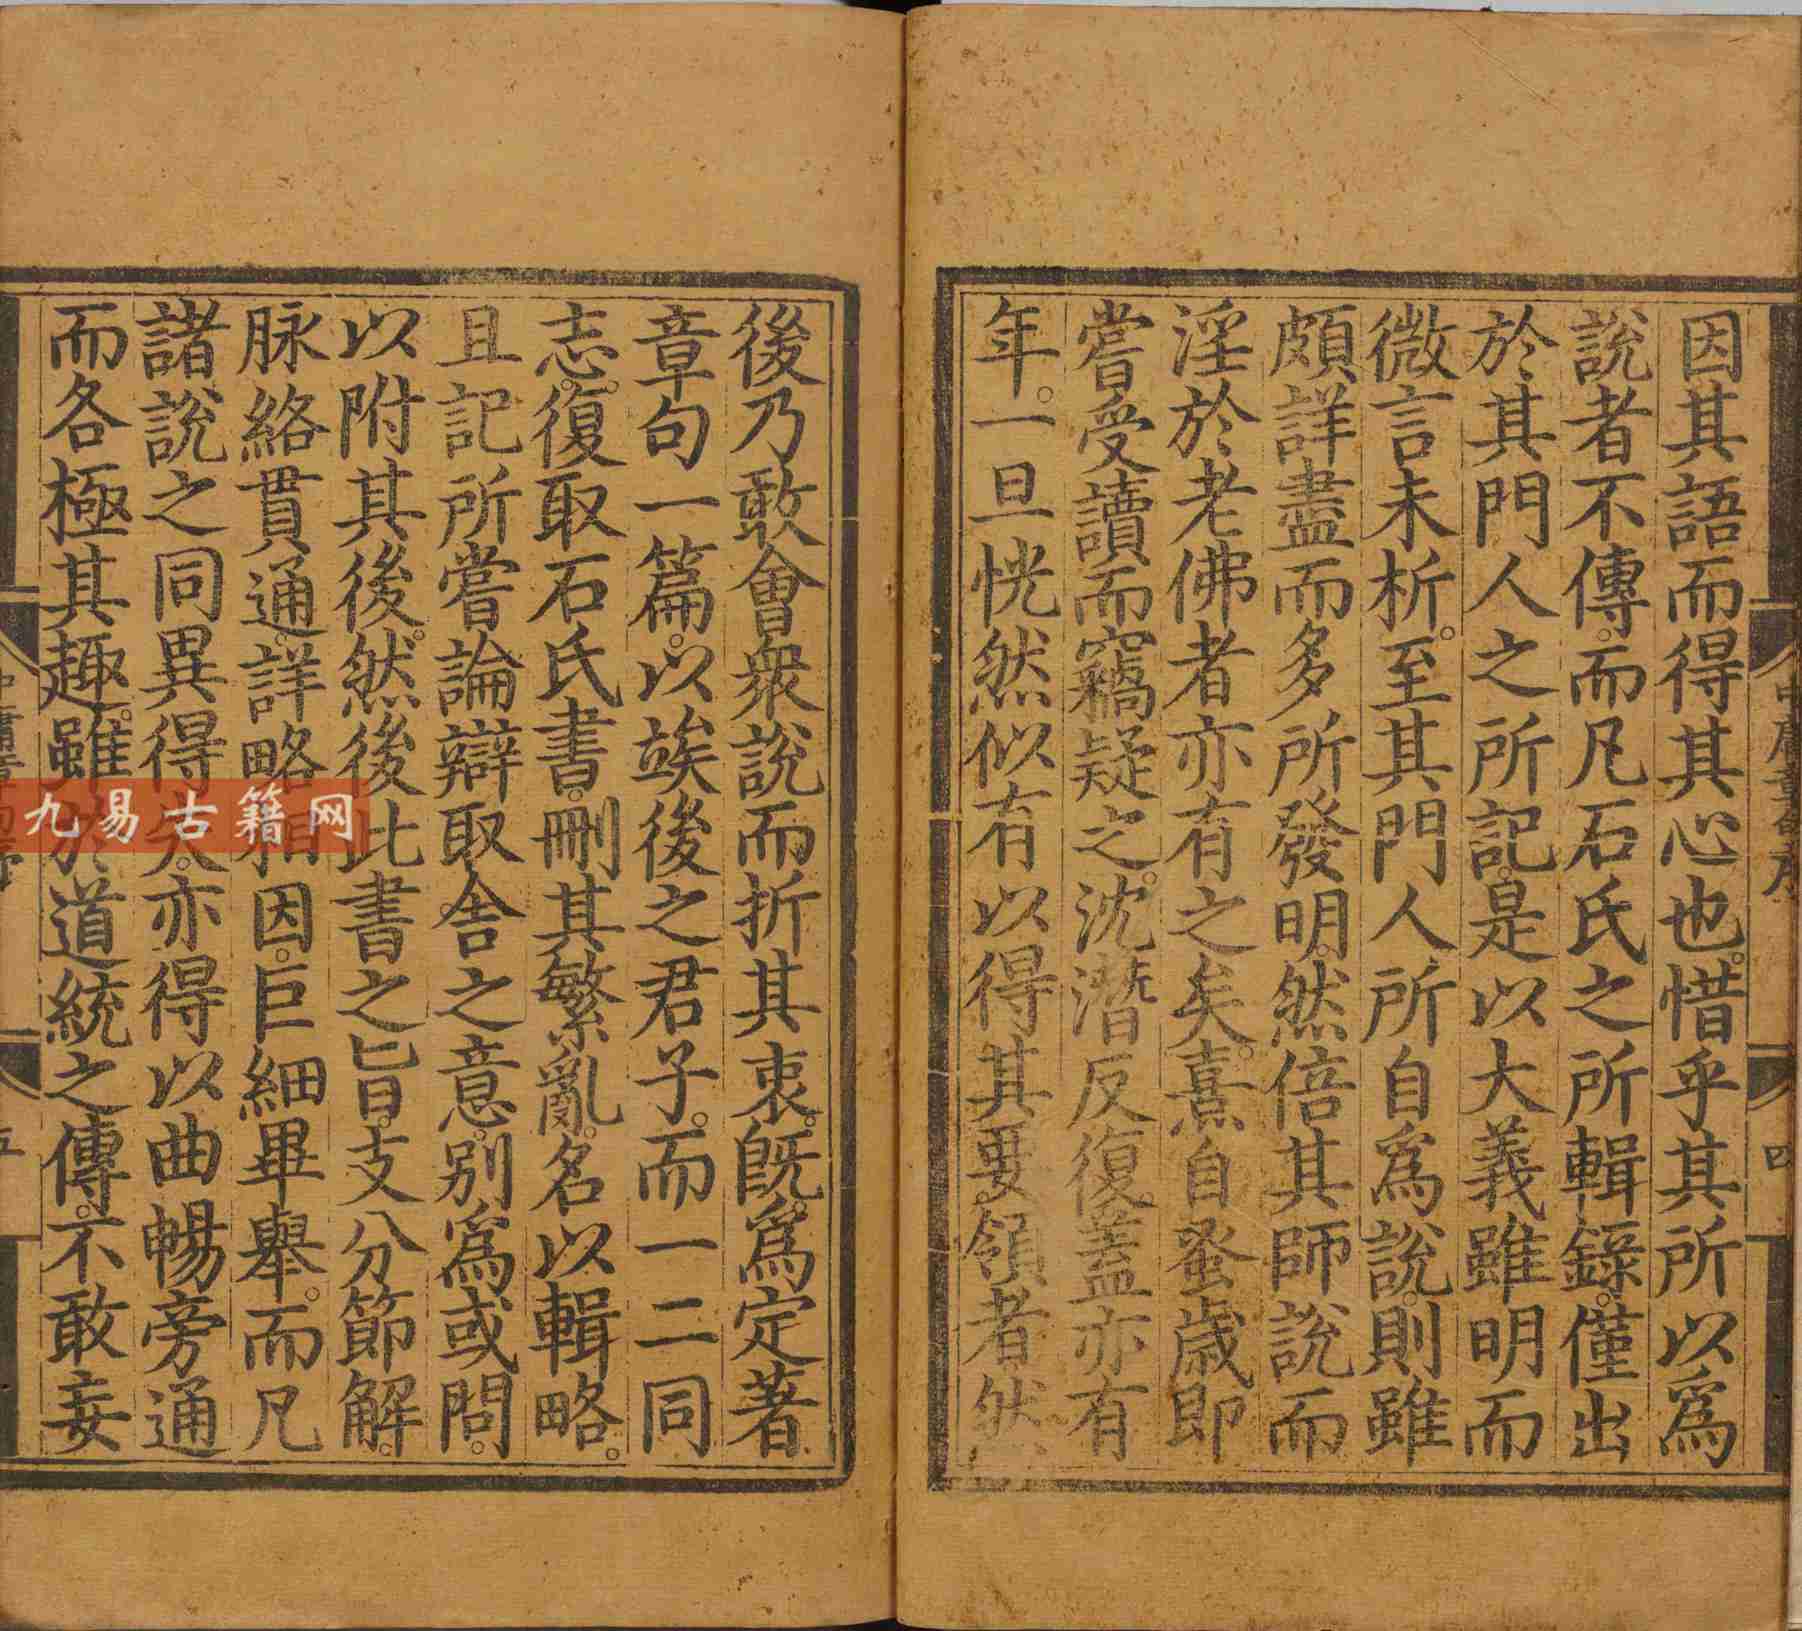 因其語而得其心也。惜乎其所以爲
説者不傳。而凡石氏之所輯錄。僅出
於其門人之所記。是以大義雖明而
微言未析。至其門人所自爲説。則雖
頗詳盡而多所發明。然倍其師説而
淫於老佛者亦有之矣。熹自蚤歲即
嘗受讀而竊疑之。沈潛反復。蓋亦有
年。一旦恍然似有以得其要領者。然
中庸章句序
四
後乃敢會衆説而折其衷。旣爲定著
章句一篇。以竢後之君子。而一二同
志。復取石氏書。刪其繁亂。名以輯略。
且記所嘗論辯取舍之意。别爲或問。
以附其後。然後此書之旨。支分節解。
脉絡貫通。詳略相因。巨細畢舉。而凡
諸説之同異得失。亦得以曲暢旁通
而各極其趣。雖於道統之傳。不敢妄
五
九易古籍网